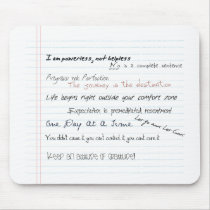 I am powerless, not helpless
No is a complete sentence
Progress not Perfection
The journey is the destination
Life begins right outside your comfort zone
Expectation is premeditated resentment
One Day At A Time
Let go and Let God
You didn't cause it you can't control it you can't cure it
Keep an attitude of gratitude!